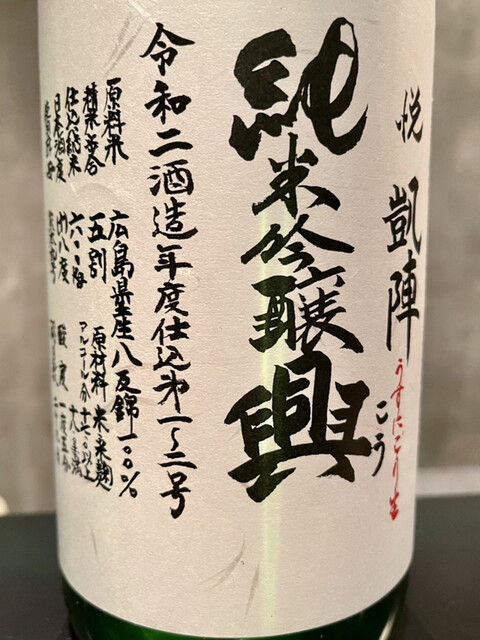 悦 凱陣
うすにごり生
純米吟醸 興
こう
令和二酒造年度仕込第一~二号
原料米 広島県産八反錦一〇〇%
精米歩合 五割 原材料 米米麹
仕込総米 六〇〇瓩 アルコール分
日本酒度 八度 酸度 一度五分